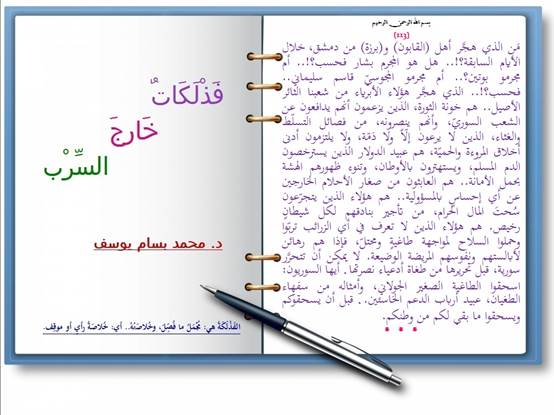 بسم الله الرحمن الرحيم
(113)
مَن الذي هجَّر أهل (القابون) و(برزة) من دمشق، خلال
الأيام السابقة؟!.. هل هو المجرم بشار فحسب؟!.. أم
مجرمو بوتين؟.. أم مجرمو المجوسيّ قاسم سليماني..
فحسب؟!.. الذي هجَّر هؤلاء الأبرياء من شعبنا الثائر
الأصيل.. هم خونة الثورة، الذين يزعمون أنهم يدافعون عن
الشعب السوريّ، وأنهم ينصرونه، من فصائل التسلّط
والغثاء، الذين لا يرعون إلّاً ولا ذمّة، ولا يلتزمون أدنى
أخلاق المروءة والحميّة، هم عبيد الدولار الذين يسترخصون
الدم المسلم، ويستهترون بالأوطان، وتنوء ظهورهم الهشة
بحمل الأمانة.. هم العابثون من صغار الأحلام الخارجين
عن أي إحساسٍ بالمسؤولية.. هم هؤلاء الذين يتجرّعون
سُحتَ المال الحرام، من تأجير بنادقهم لكل شيطانٍ
رخيص، هم هؤلاء الذين لا تعرف في أي الزرائب تربَّوا
وحملوا السلاح لمواجهة طاغيةٍ ومحتلّ، فإذا هم رهائن
لأبالستهم ونفوسهم المريضة الوضيعة. لا يمكن أن تتحرَّر
سورية، قبل تحريرها من طغاة أدعياء نصرتها. أيها السوريون:
اسحقوا الطاغية الصغير الجولاني، وأمثاله من سفهاء
الطغيان، عبيد أرباب الدعم الخاسئين.. قبل أن يسحقوكم
ويسحقوا ما بقي لكم من وطنكم.
* * *
فَذْلَكَاتٌ
خَارجَ
السِّرْب
د. محمد بسام يوسف
الفَذْلَكَةُ هي: مُجْمَلُ ما فُصِّلَ، وخُلاصَتُهُ.. أي: خُلاصَةُ رأيٍ أو موقِف.